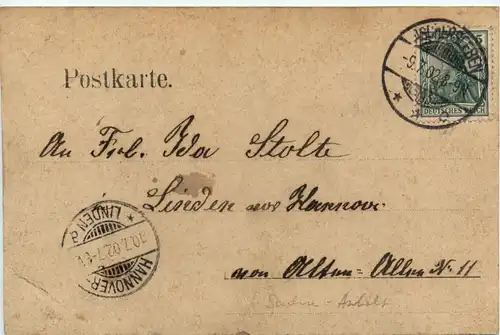 Postkarte.
DEUTSCHES REICH
An Frl. Ida Stolte
Linden vor Hannover
von Alten-Allee N. 11
HANNOVER-
* LINDEN
10.7.02.7-
-9.7.02